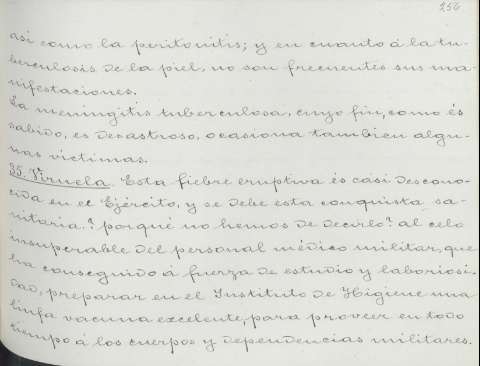 256
asi como la peritonitis; y en cuanto á la tu-
berculosis de la piel, no son frecuentes sus ma-
nifestaciones.
La meningitis tuberculosa, cuyo fin, como és
sabido, es desastroso, ocasiona tambien algu-
nas victimas.
35. Viruela. Esta fiebre eruptiva és casi descono-
cida en el Ejército, y se debe esta conquista sa-
nitaria, ? porqué no hemos de decirlo? al celo
insuperable del personal médico militar, que
ha conseguido á fuerza de estudio y laboriosi-
dad, preparar en el Instituto de Higiene una
linfa vacuna excelente, para proveer en todo
tiempo á los cuerpos y dependencias militares.